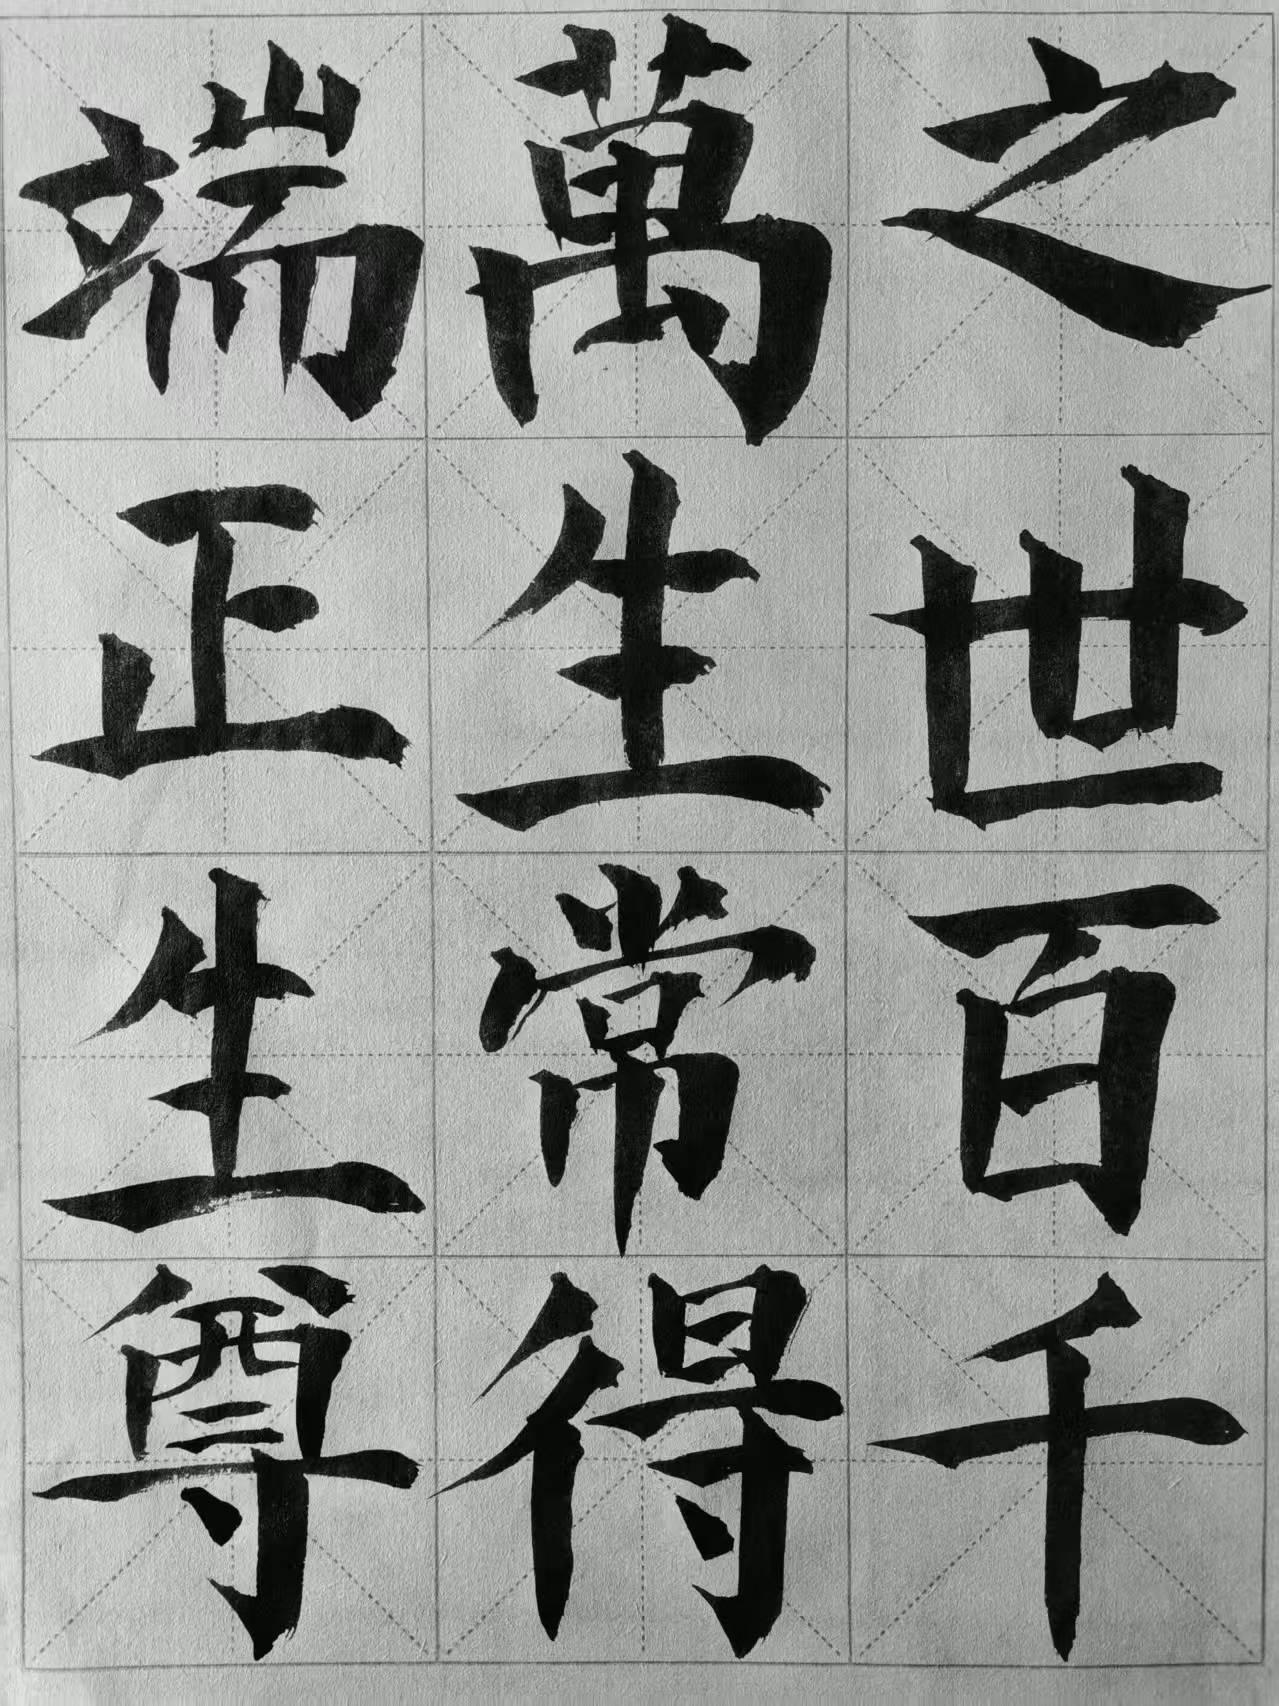 之世百千
萬生常得
端正生尊